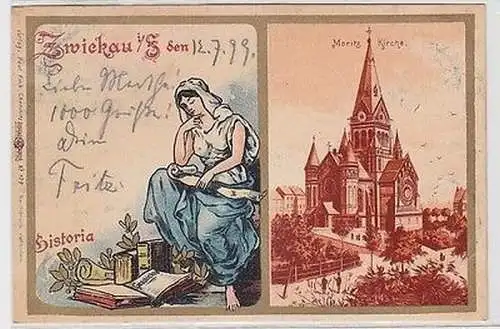 Zwickau i/S den 12.7.99.
Liebe Marthe!
1000 Grüße!
Dein
Fritz.
Historia
Moritz Kirche.